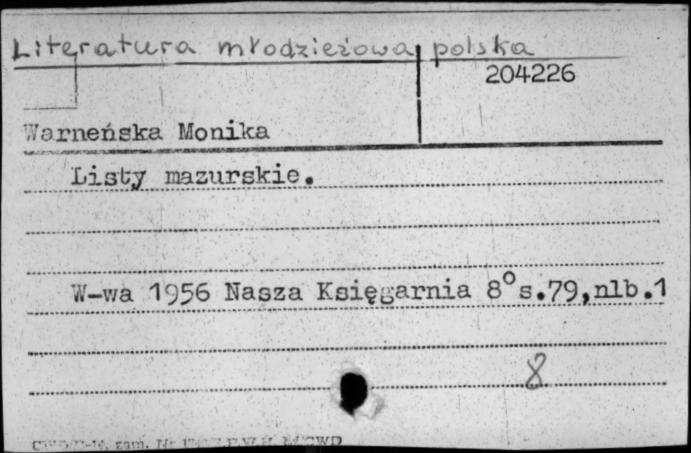 Literatura młodzieżowa polska
204226
Warneńska Monika
Listy mazurskie.
W-wa 1956 Nasza Księgarnia 8° s.79,nlb.1
8
zam.